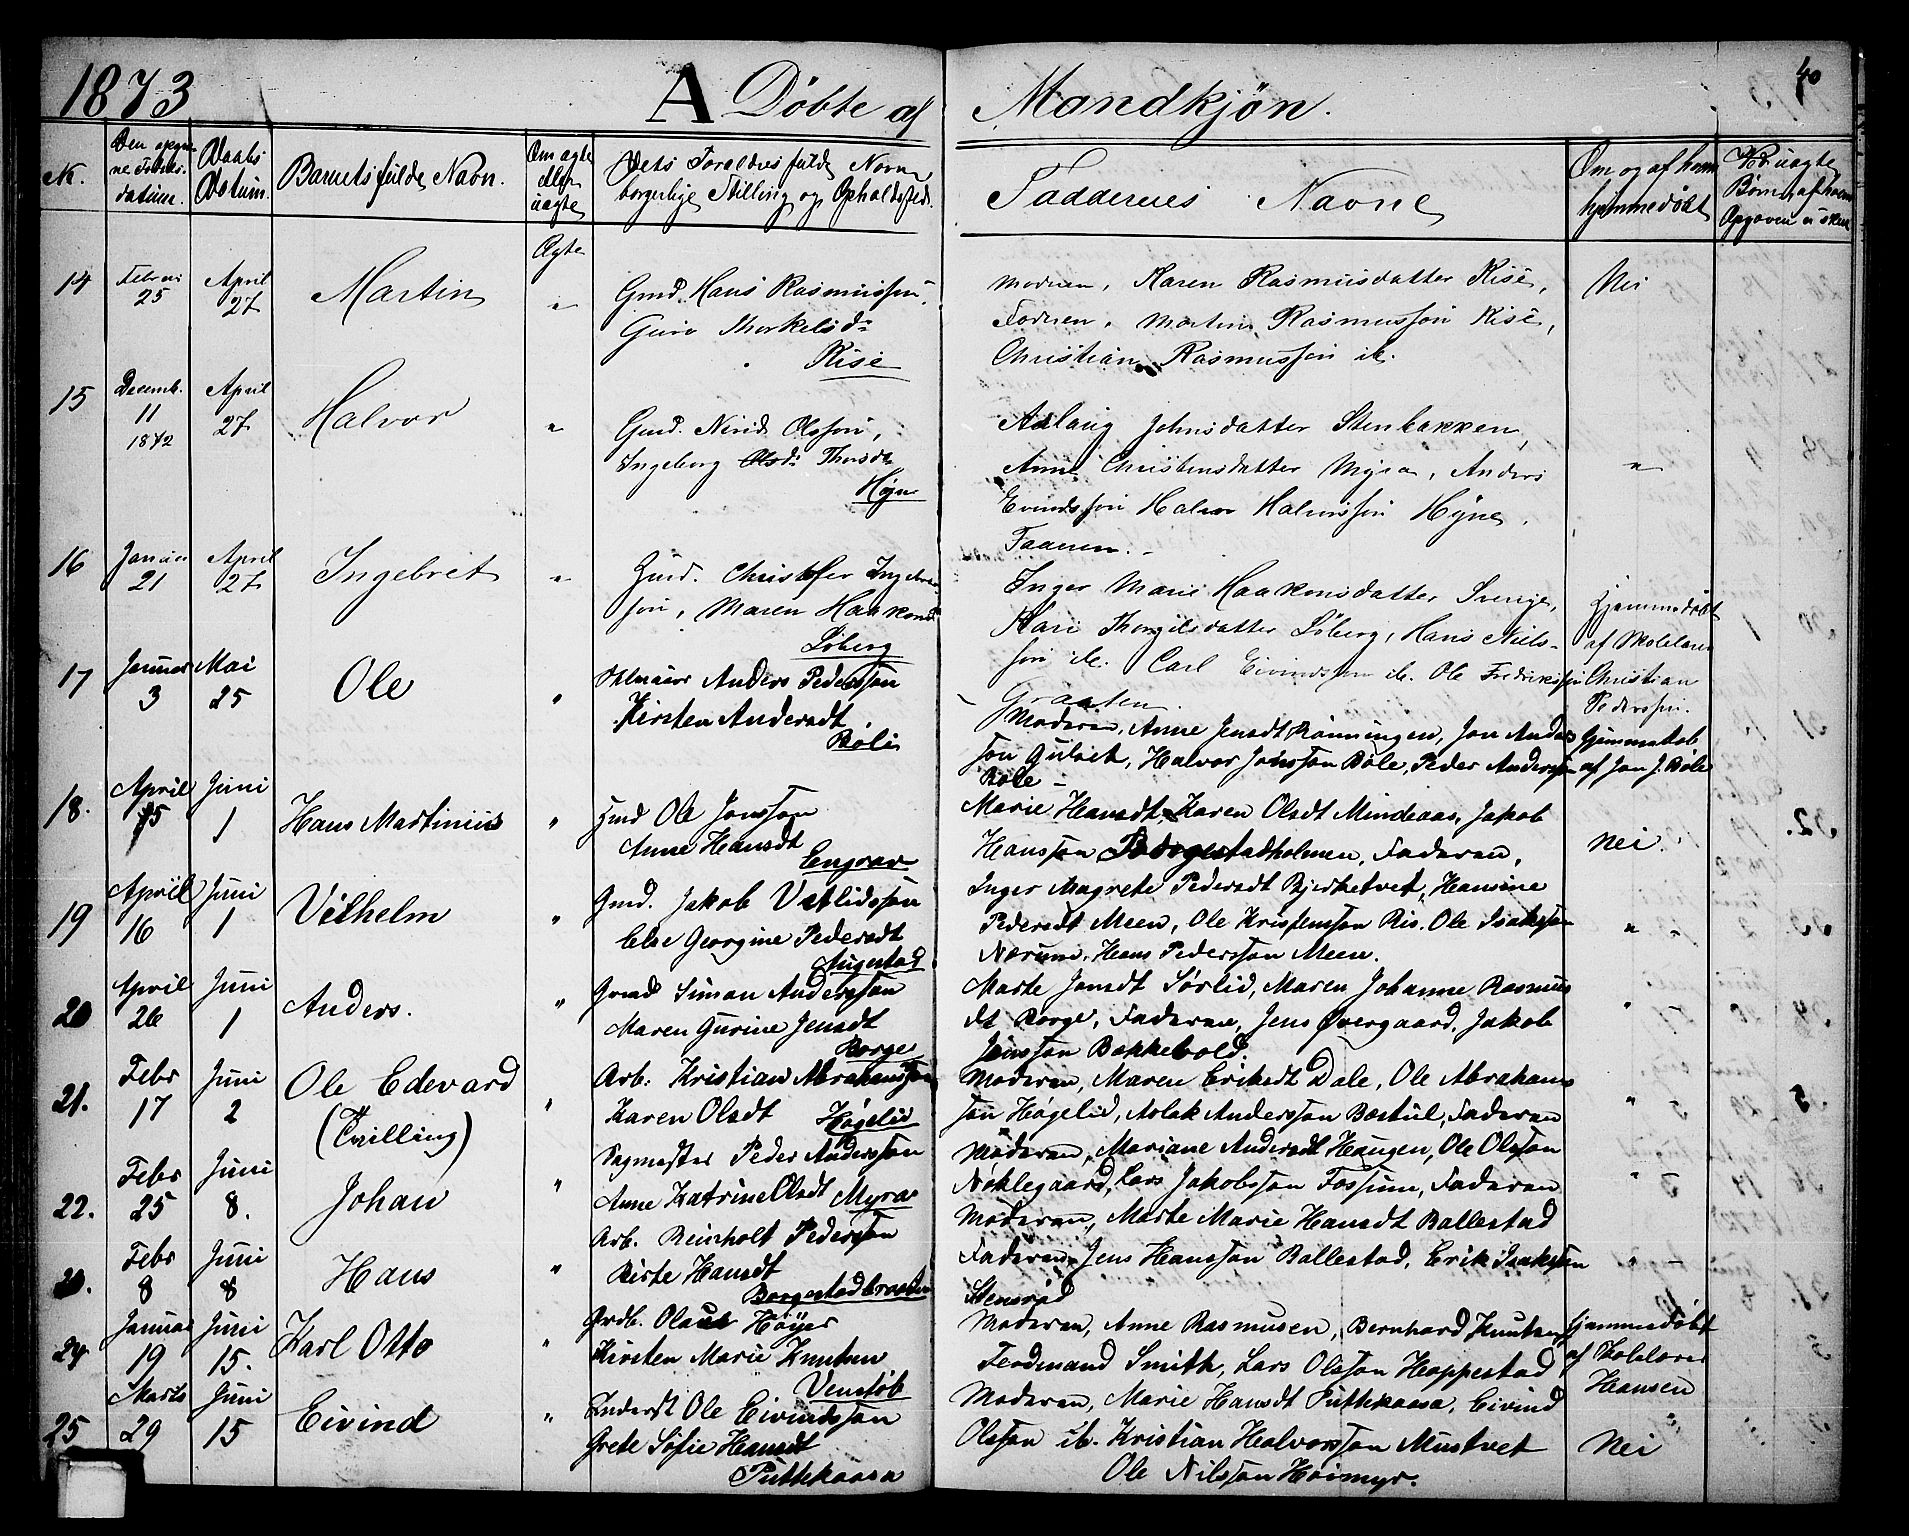 1873 A Døbte af Mandkjøn. 40
No. Den opgivne Fødselsdatum. Daabs Datum. Barnets fulde Navn. Om ægte eller uægte Dets Forældres fulde Navne borgerlige Stilling og Opholdssted. Faddernes Navne Om og af hvem hjemmedøbt Ved uægte Børn, af hvem Opgaven er skeet
Ægte
14 Februar 25 April 27 Martin " Gmd. Hans Rasmussøn,
Guro Thorkelsd:
Rise
Moderen, Karen Rasmusdatter Rise,
Faderen, Martin Rasmussøn Rise,
Christian Rasmussøn ib.
Nei
15 Decemb. 11 1872 April 27 Halvor " Gmd. Nirid Olssøn,
Ingeborg Olsd: Thorsd:
Høgn
Aslaug Johnsdatter Stenbakken,
Anne Christensdatter Myra, Anders
Eivindssøn Halvor Halvorssøn Høgne,
Faderen. -
"
16 Januar 21 April 27 Ingebret " Hmd. Christofer Ingebretsøn, Maren Haakonsd
Løberg
Inger Marie Haakonsdatter Sverige,
Kari Thorgilsdatter Løberg, Hans Nielssøn ib. Carl Eivindssøn ib. Ole Fredrikssøn
Graaten.
Hjemmedøbt
af Skolelærer
Christian
Pederssen.
17 Januar 3 Mai 25 Ole " Anders Pederssøn
Kirsten Andersdt.
Bøle
Moderen, Anne Jensdt Rønningen, Jon Anderssøn Gulset, Halvor Jonssøn Bøle, Peder Anderssøn
Bøle -
Hjemmedøb
af Jon J. Bøle
18. April 15 Juni 1 Hans Martinius " Hmd Ole Jonssøn
Anne Hansdt
Engrav
Marie Hansdt, Karen Olsdt Mindeaas, Jakob
Hanssøn Borgestadholmen, Faderen,
Nei.
19 April 16 Juni 1 Vilhelm " Gmd. Jakob Vetlidssøn
Else Georgine Pedersdt
Augestad
Inger Magrete Pedersdt Bjerketvet, Hansine
Pedersdt Meen, Ole Kristenssøn Ris. Ole Isakssøn
Nærum, Hans Pederssøn Meen.
" -
20 April 26 Juni 1 Anders. " Gmd Simon Anderssøn
Maren Gurine Jensdt
Borge
Marte Jonsdt Sørlid, Maren Johanne Rasmusdt Borge, Faderen, Jens Øvergaard, Jakob
Jenssøn Bakkevold.
"
21. Febr 17 Juni 2 Ole Edevard
(Tvilling)
" Arb. Kristian Abrahamssøn
Karen Olsdt Høgelid
Moderen, Maren Eriksdt Dale, Ole Abrahamssøn Høgelid, Aslak Anderssøn Bæstul, Faderen
" -
22. Febr 25 Juni 8. Johan " Sagmester Peder Anderssøn
Anne Katrine Olsdt Myra
Moderen, Mariane Andersdt Haugen, Ole Olssøn
Nøklegaard, Lars Jakobssøn Fossum, Faderen
" -
23. Febr 8 Juni 8 Hans " Arb. Reinholt Pederssøn
Birte Hansdt
Moderen, Marte Marie Hansdt Ballestad
Faderen, Jens Hanssøn Ballestad, Erik Isakssøn
Stensrød
" -
24 Januar 19 Juni 15. Karl Otto " Grdb. Olaus Høyer
Kirsten Marie Knutsen
Venstøb
Moderen, Anne Rasmusen, Bernhard Knutsen
Ferdinand Smith, Lars Olssøn Hoppestad
Hjemmedøbt
af Skolelærer
Hansen
25 Marts 29 Juni 15 Eivind " Inderst Ole Eivindssøn
Grete Sofie Hansdt
Puttekaasa
Moderen, Marie Hansdt Puttekaasa, Eivind
Olssøn ib. Kristian Halvorssøn Mustvet
Ole Nilssøn Høimyr.
Nei